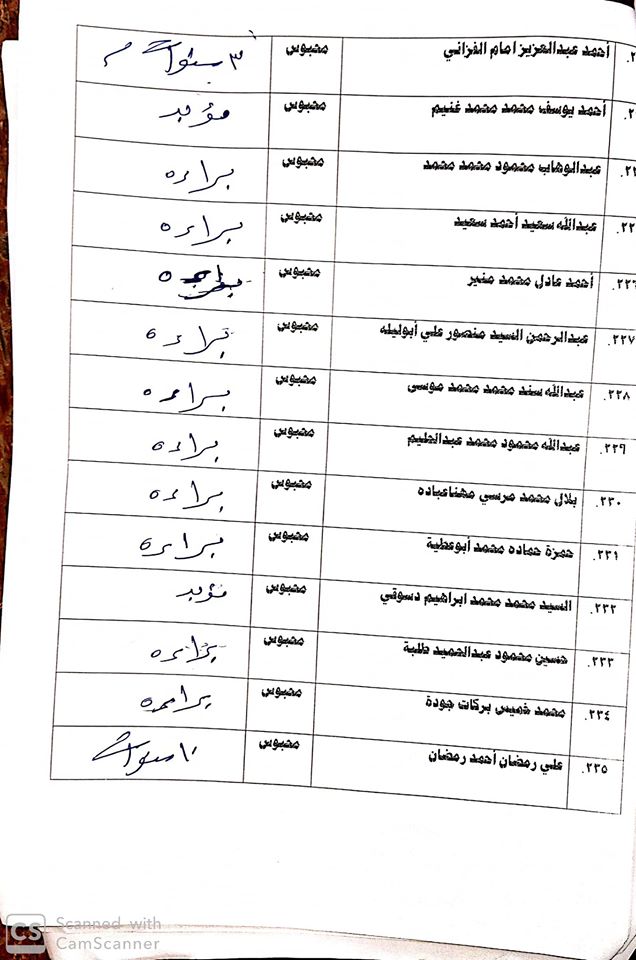 أحمد عبدالعزيز امام الفزاني محبوس ٣ سنوات
أحمد يوسف محمد محمد غنيم محبوس مؤبد
عبدالوهاب محمود محمد محمد محبوس براءه
عبدالله سعيد أحمد سعيد محبوس براءه
٢٢٦. أحمد عادل محمد منير محبوس
٢٢٧. عبدالرحمن السيد منصور علي أبوليله محبوس براءة
٢٢٨. عبدالله سند محمد محمد موسى محبوس براءه
٢٢٩. عبدالله محمود محمد عبدالحليم محبوس براءه
٢٣٠. بلال محمد مرسي مهنا عباده محبوس براءه
٢٣١. حمزة حماده محمد أبوعطية محبوس براءة
٢٣٢. السيد محمد محمد ابراهيم دسوقي محبوس مؤبد
٢٣٣. حسين محمود عبدالحميد طلبة محبوس براءه
٢٣٤. محمد خميس بركات جودة محبوس براءه
٢٣٥. علي رمضان أحمد رمضان محبوس سنوات
CS Scanned with
CamScanner